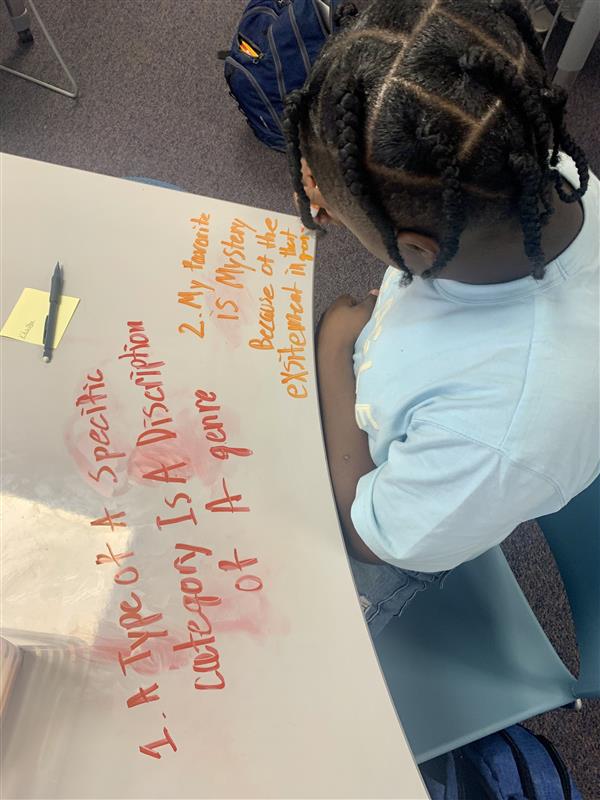 1. A Type of A Specific
category Is A Discription
of A genre
2. My favorite
is Mystery
Because of the
exsitement in that